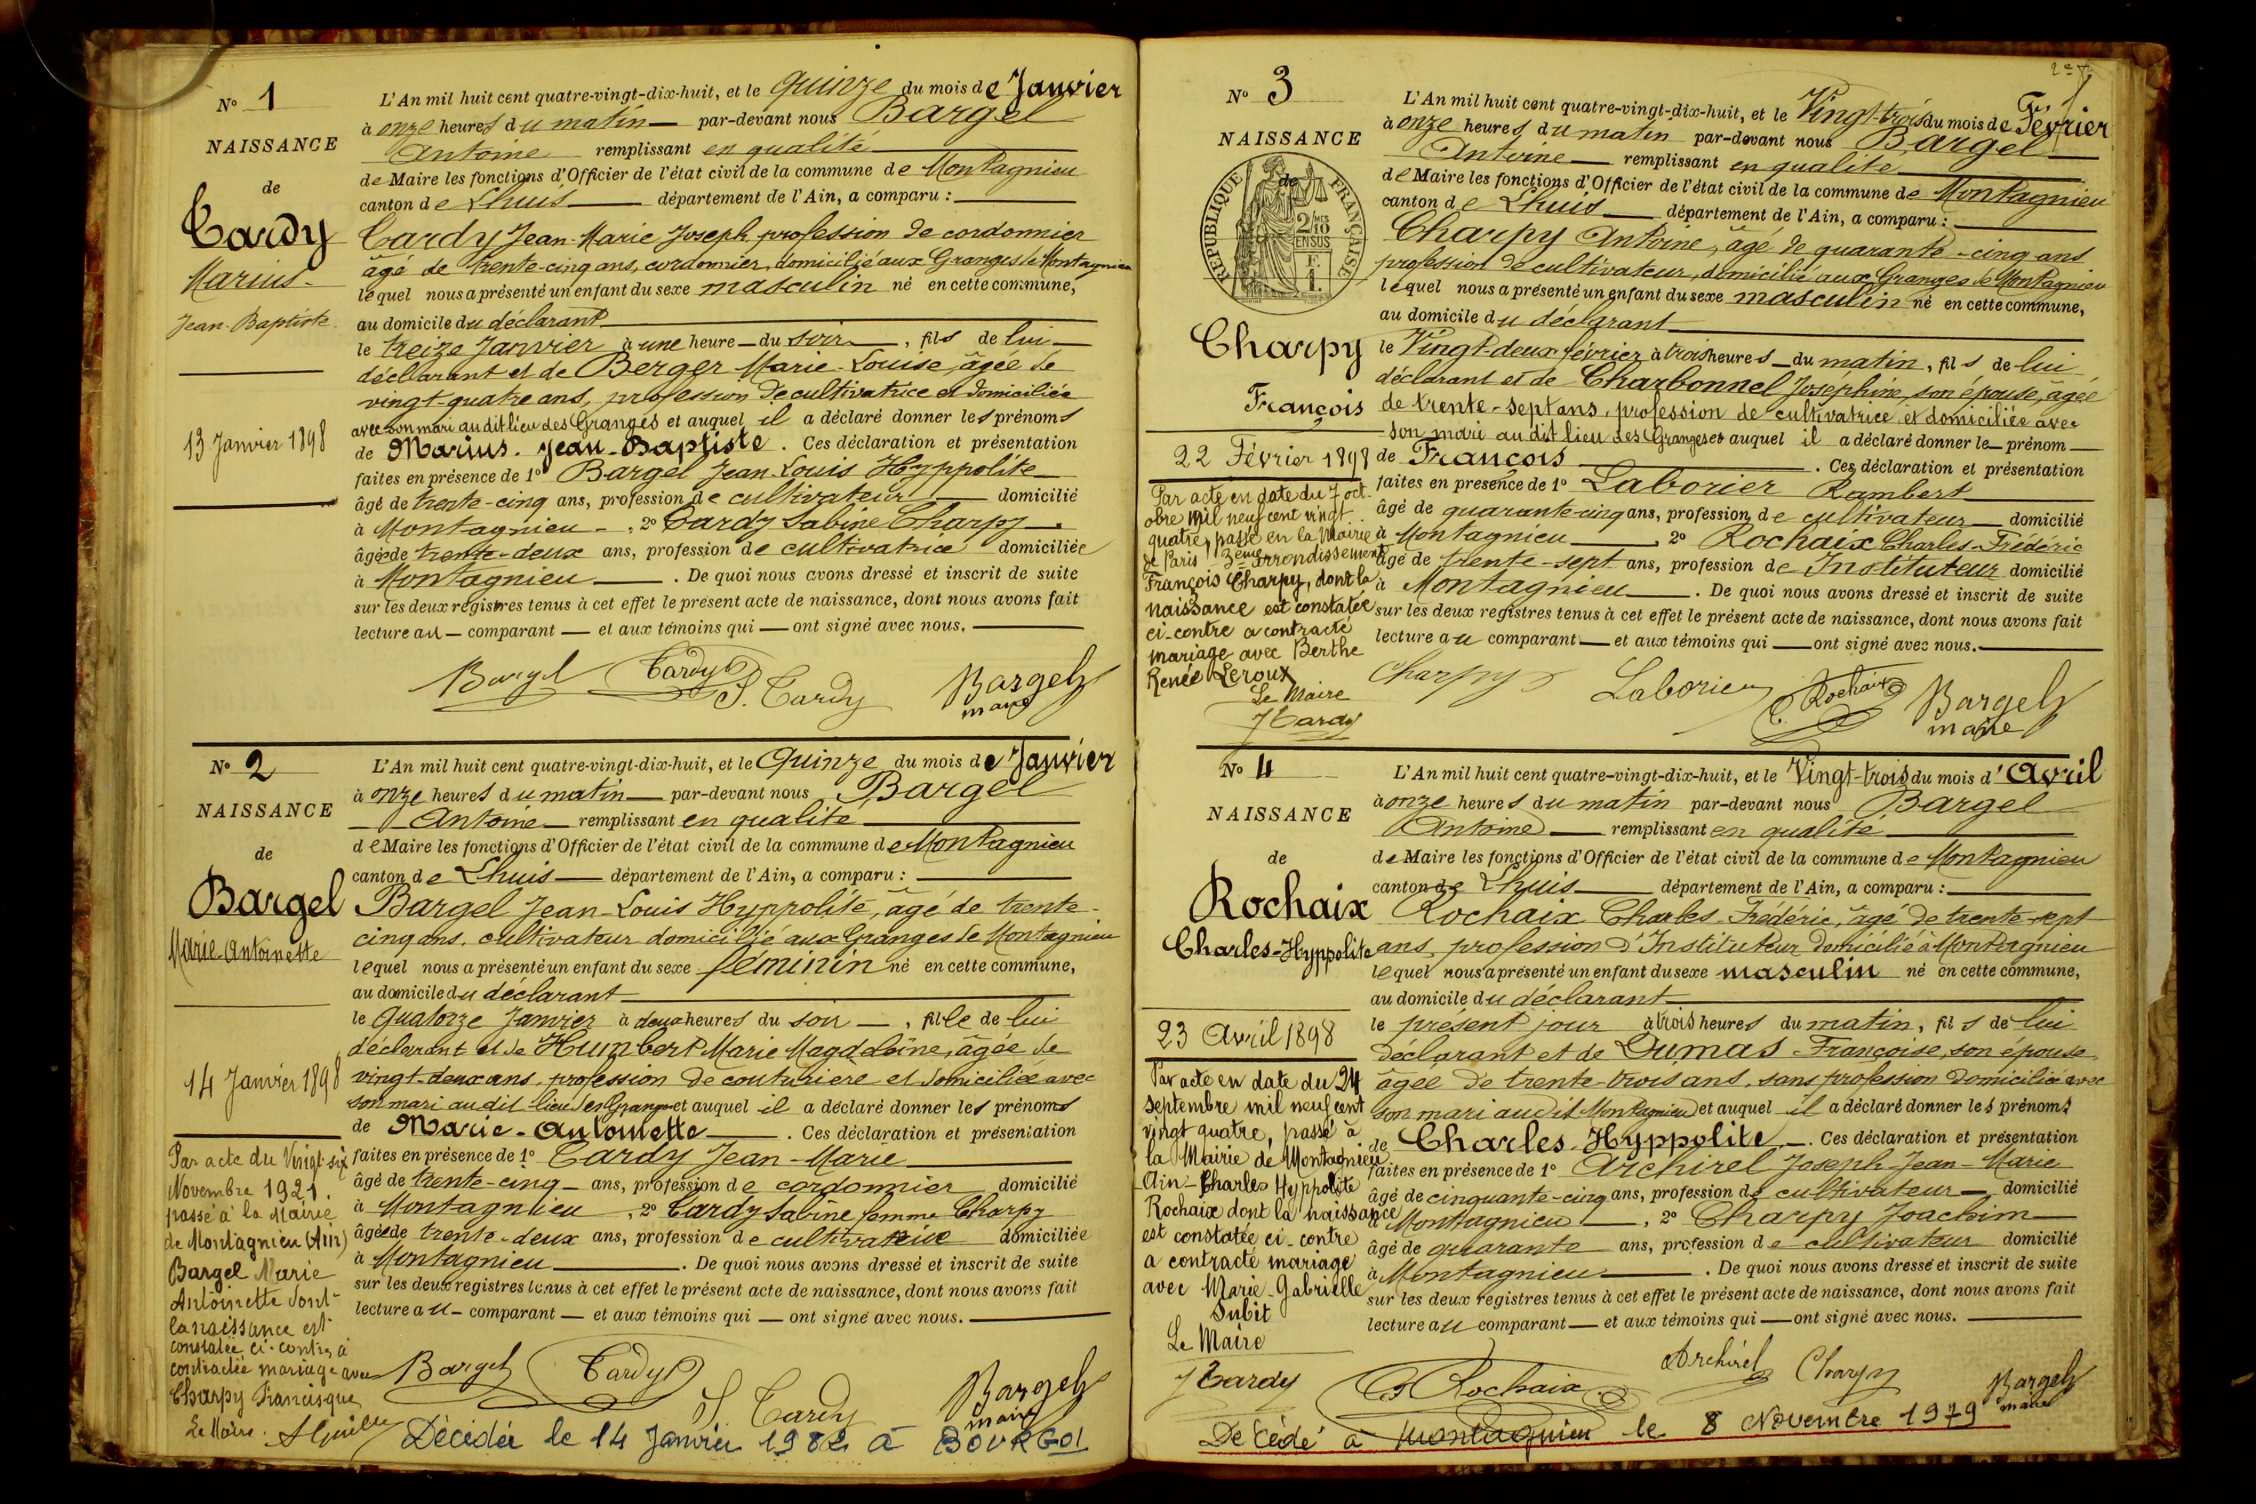 N° 1
NAISSANCE
de
Tardy
Marius
Jean-Baptiste
13 Janvier 1898
L'An mil huit cent quatre-vingt-dix-huit, et le quinze du mois de Janvier
à onze heures du matin par-devant nous Bargel
Antoine remplissant en qualité
de Maire les fonctions d'Officier de l'état civil de la commune de Montagnieu
canton de Lhuis département de l'Ain, a comparu :
Tardy Jean-Marie Joseph profession de cordonnier
âgé de trente-cinq ans, cordonnier, domicilié aux Granges de Montagnieu
lequel nous a présenté un enfant du sexe masculin né en cette commune,
au domicile du déclarant
le treize Janvier à une heure du soir, fils de lui
déclarant et de Berger Marie-Louise, âgée de
vingt-quatre ans, profession de cultivatrice et domiciliée
avec son mari au dit lieu des Granges et auquel il a déclaré donner les prénoms
de Marius. Jean-Baptiste. Ces déclaration et présentation
faites en présence de 1° Bargel Jean Louis Hyppolite
âgé de trente-cinq ans, profession de cultivateur domicilié
à Montagnieu, 2° Tardy Sabine Charpy
âgée de trente-deux ans, profession de cultivatrice domiciliée
à Montagnieu. De quoi nous avons dressé et inscrit de suite
sur les deux registres tenus à cet effet le présent acte de naissance, dont nous avons fait
lecture au comparant et aux témoins qui ont signé avec nous.
Bargel Tardy S. Tardy Bargel
maire
N° 2
NAISSANCE
de
Bargel
Marie-Antoinette
14 Janvier 1898
Par acte du Vingt-six
Novembre 1921.
passé à la Mairie
de Montagnieu (Ain)
Bargel Marie
Antoinette dont
la naissance est
constatée ci-contre, a
contractée mariage avec
Charpy Francisque
Le Maire.
L'An mil huit cent quatre-vingt-dix-huit, et le Quinze du mois de Janvier
à onze heures du matin par-devant nous Bargel
Antoine remplissant en qualité
de Maire les fonctions d'Officier de l'état civil de la commune de Montagnieu
canton de Lhuis département de l'Ain, a comparu :
Bargel Jean-Louis Hyppolite, âgé de trente-
cinq ans, cultivateur domicilié aux Granges de Montagnieu
lequel nous a présenté un enfant du sexe féminin né en cette commune,
au domicile du déclarant
le Quatorze Janvier à deux heures du soir, fille de lui
déclarant et de Humbert Marie Magdeleine, âgée de
vingt-deux ans, profession de couturière et domiciliée avec
son mari au dit lieu des Granges et auquel il a déclaré donner les prénoms
de Marie-Antoinette. Ces déclaration et présentation
faites en présence de 1° Tardy Jean-Marie
âgé de trente-cinq ans, profession de cordonnier domicilié
à Montagnieu, 2° Tardy Sabine femme Charpy
âgée de trente-deux ans, profession de cultivatrice domiciliée
à Montagnieu. De quoi nous avons dressé et inscrit de suite
sur les deux registres tenus à cet effet le présent acte de naissance, dont nous avons fait
lecture au comparant et aux témoins qui ont signé avec nous.
Bargel Tardy S. Tardy Bargel
maire
Décédée le 14 Janvier 1982 à BOURGOI
N° 3
NAISSANCE
de
RÉPUBLIQUE FRANÇAISE
2/10
EN SUS
F.
1.
Charpy
François
22 Février 1898
Par acte en date du 7 oct.
obre mil neuf cent vingt
quatre, passé en la Mairie
de Paris 3ème Arrondissement
François Charpy, dont la
naissance est constatée
ci-contre a contracté
mariage avec Berthe
Renée Leroux
Le Maire
J Tardy
L'An mil huit cent quatre-vingt-dix-huit, et le Vingt-trois du mois de Février
à onze heures du matin par-devant nous Bargel
Antoine remplissant en qualité
de Maire les fonctions d'Officier de l'état civil de la commune de Montagnieu
canton de Lhuis département de l'Ain, a comparu :
Charpy Antoine, âgé de quarante-cinq ans
profession de cultivateur, domicilié aux Granges de Montagnieu
lequel nous a présenté un enfant du sexe masculin né en cette commune,
au domicile du déclarant
le Vingt-deux février à trois heures du matin, fils de lui
déclarant et de Charbonnel Joséphine, son épouse, âgée
de trente-sept ans, profession de cultivatrice et domiciliée avec
son mari au dit lieu des Granges et auquel il a déclaré donner le prénom
de François. Ces déclaration et présentation
faites en présence de 1° Laborier Rambert
âgé de quarante-cinq ans, profession de cultivateur domicilié
à Montagnieu, 2° Rochaix Charles-Frédéric
âgé de trente-sept ans, profession de Instituteur domicilié
à Montagnieu. De quoi nous avons dressé et inscrit de suite
sur les deux registres tenus à cet effet le présent acte de naissance, dont nous avons fait
lecture au comparant et aux témoins qui ont signé avec nous.
Charpy Laborier C Rochaix Bargel
maire
N° 4
NAISSANCE
de
Rochaix
Charles-Hyppolite
23 Avril 1898
Par acte en date du 24
septembre mil neuf cent
vingt quatre, passé à
la Mairie de Montagnieu
Ain-Charles Hyppolite
Rochaix dont la naissance
est constatée ci-contre
a contracté mariage
avec Marie-Gabrielle
Subit
Le Maire
J Tardy
L'An mil huit cent quatre-vingt-dix-huit, et le Vingt-trois du mois d'Avril
à onze heures du matin par-devant nous Bargel
Antoine remplissant en qualité
de Maire les fonctions d'Officier de l'état civil de la commune de Montagnieu
canton de Lhuis département de l'Ain, a comparu :
Rochaix Charles-Frédéric, âgé de trente-sept
ans, profession d'Instituteur domicilié à Montagnieu
lequel nous a présenté un enfant du sexe masculin né en cette commune,
au domicile du déclarant
le présent jour à trois heures du matin, fils de lui
déclarant et de Dumas Françoise, son épouse,
âgée de trente-trois ans, sans profession domiciliée avec
son mari audit Montagnieu et auquel il a déclaré donner les prénoms
de Charles-Hyppolite. Ces déclaration et présentation
faites en présence de 1° Archirel Joseph-Jean-Marie
âgé de cinquante-cinq ans, profession de cultivateur domicilié
à Montagnieu, 2° Charpy Joachim
âgé de quarante ans, profession de cultivateur domicilié
à Montagnieu. De quoi nous avons dressé et inscrit de suite
sur les deux registres tenus à cet effet le présent acte de naissance, dont nous avons fait
lecture au comparant et aux témoins qui ont signé avec nous.
C Rochaix Archirel Charpy Bargel
maire
Décédé à Montagnieu le 8 Novembre 1979